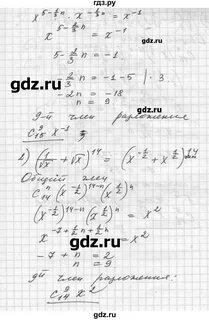 гдз.ру
x^{5-\frac{1}{3}n} · x^{-\frac{1}{3}n} = x^{-1}
gdz.ru
x^{5-\frac{2}{3}n} = x^{-1}
5 - \frac{2}{3}n = -1.
-\frac{2}{3}n = -1-5 | · 3.
-2n = -18
n = 9
9-й член разложения
C_{15}^{9} x^{-1}
gdz.ru
2) (\frac{1}{\sqrt{x}} + \sqrt{x})^{14} = (x^{-\frac{1}{2}} + x^{\frac{1}{2}})^{14}
Общий член
C_{14}^{n} (x^{-\frac{1}{2}})^{14-n} (x^{\frac{1}{2}})^{n}
(x^{-\frac{1}{2}})^{14-n} (x^{\frac{1}{2}})^{n} = x^{2}
x^{-7+\frac{1}{2}n+\frac{1}{2}n} = x^{2}
-7 + n = 2
n = 9
gdz.ru
9й член разложения:
C_{14}^{9} x^{2}
gdz.ru